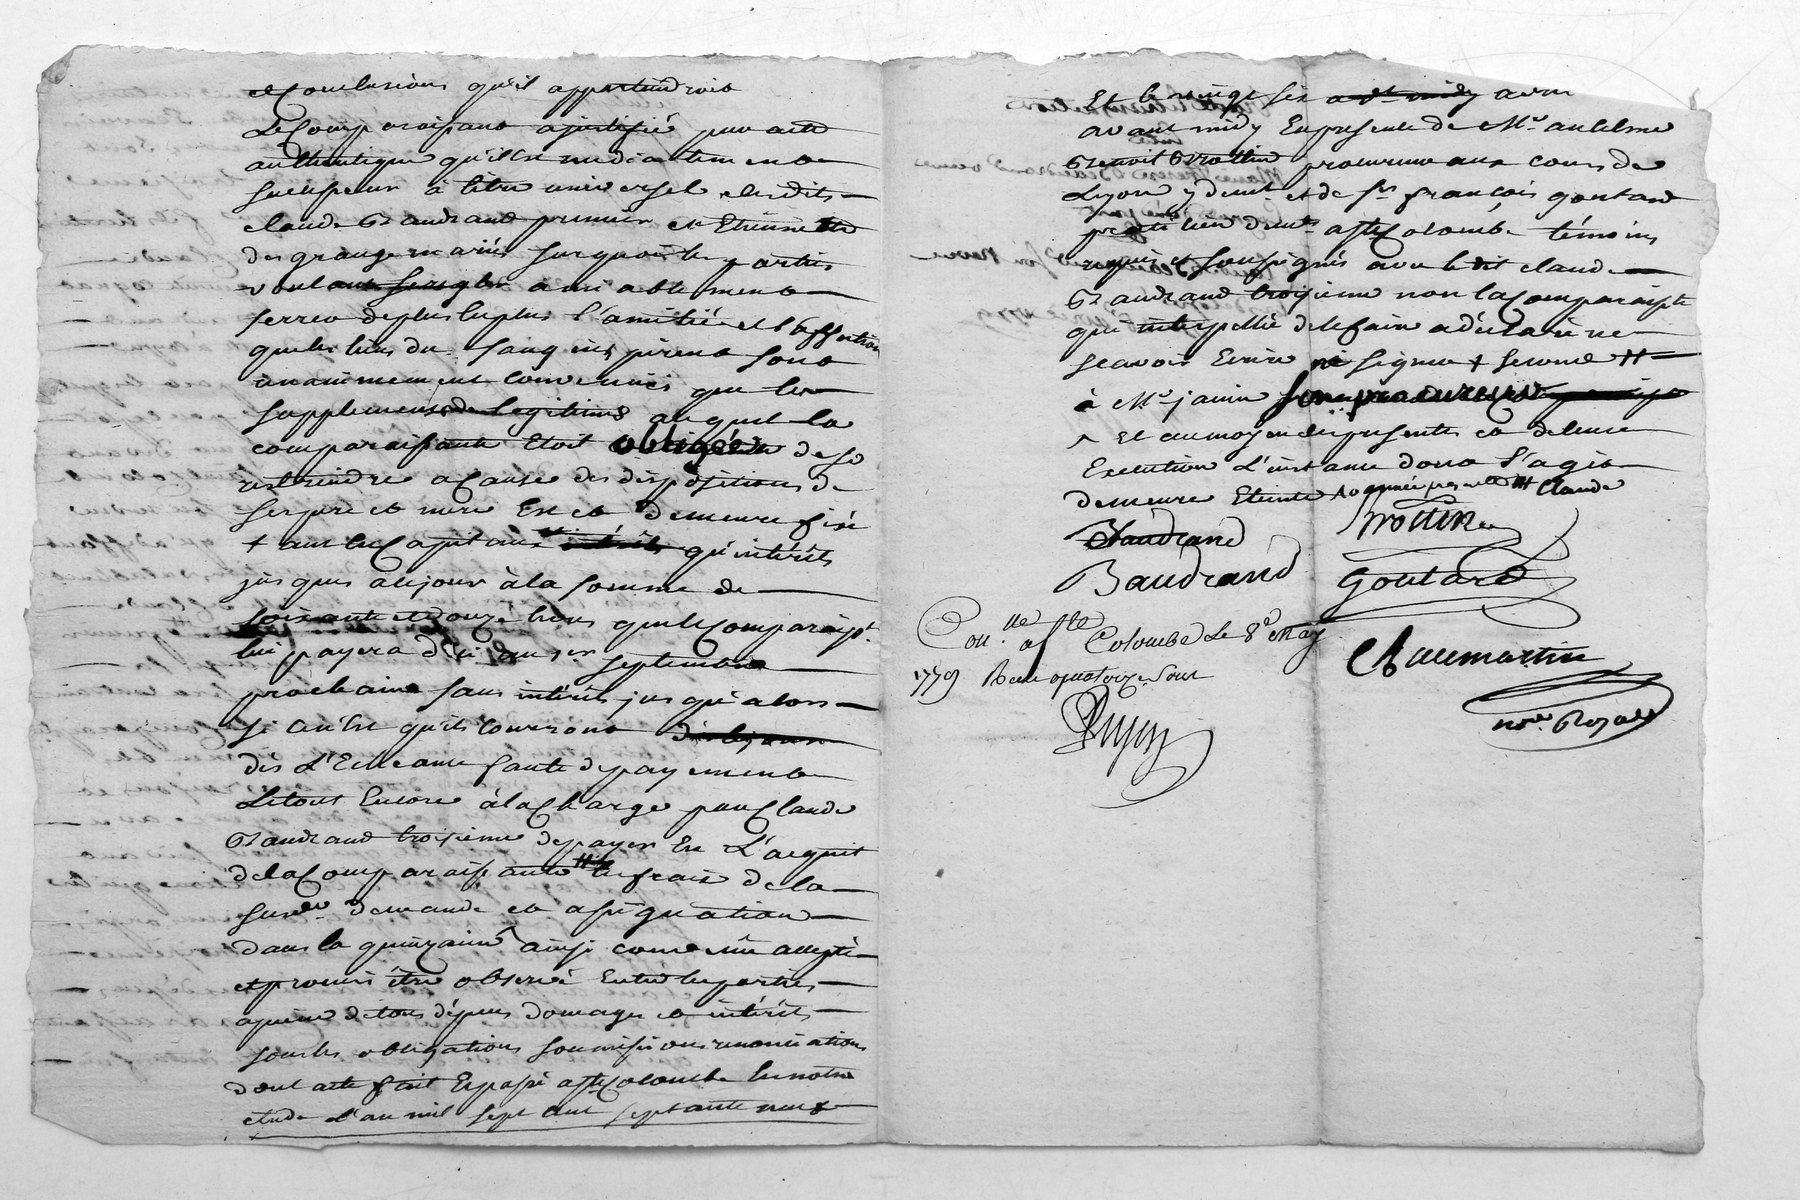 et Conclusions qu'il appartiendroit
Le Comparaissant a justifié par acte
authentique qu'il est médiatement
successeur à titre universel desdits
claude Baudrand premier et Etiennette
des granges mariés sur quoi les parties
voulant se régler amiablement
serrer de plus en plus l'amitié et l'affection
que les liens du sang inspirent sont
unanimement convenues que les
supplements de légitimes auquel la
comparaissante Etoit obligée de se
restraindre a Cause des dispositions de
ses pere et mere Est et demeure fixé
+ tant en Capitaux qu'intérêts
jusques a ce jour à la somme de
soixante et douze livres que le Comparaisst
lui payera d'ici au 1er septembre
prochain sans intérêts jusqu'alors
si ce n'est qu'ils Courront
dès L'Echeance faute de payement
Le tout Encore à la Charge par Claude
Baudrand troisieme de payer En L'acquit
de la Comparaissante # les frais de la
susd. demande et assignation
dans la quinzaine ainsi convenu accepté
et promis être observé Entre les parties
a peine de tous dépens domages et intérêts
sous les obligations soumissions renonciations
dont acte fait Et passé a Ste Colombe En notre
etude L'an mil sept cent septante neuf
Et le vingt six avril
avant midy En présence de Me anselme
Benoit Brottin procureur aux cours de
Lyon y demt et de sr françois goutard
praticien demt a Ste Colombe témoins
requis et soussignés avec ledit claude
Baudrand troisieme non la Comparaisste
qui interpellée de le faire a déclaré ne
scavoir Ecrire ni signer + se soume #
à Me janin son procureur
^ Et au moyen des présentes et de leur
Execution L'instance dont s'agit
demeure Eteinte Claude
Baudrand Brottin
Baudrand Goutard
Conlle a Ste Colombe Le 8e May
1779 Recu quatorze sous
Chaumartin
nore Royal